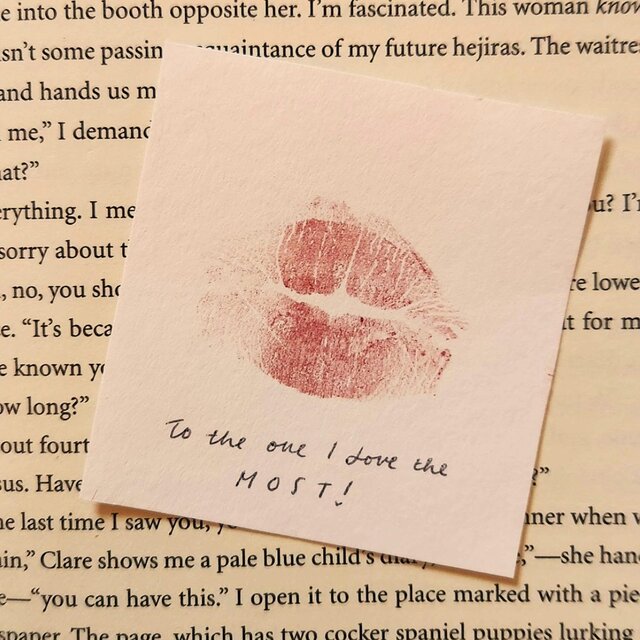 e into the booth opposite her. I'm fascinated. This woman know
isn't some passin quaintance of my future hejiras. The waitre
and hands us m
me," I demand
at?"
erything. I me u? I'
sorry about t
, no, you sho re lowe
e. "It's beca t for m
e known yo
ow long?"
out fourt
sus. Have ?"
To the one I love the
MOST!
he last time I saw you, y nner when w
in," Clare shows me a pale blue child's diary, ,"—she han
e—"you can have this." I open it to the place marked with a pie
spaper. The page, which has two cocker spaniel puppies lurking